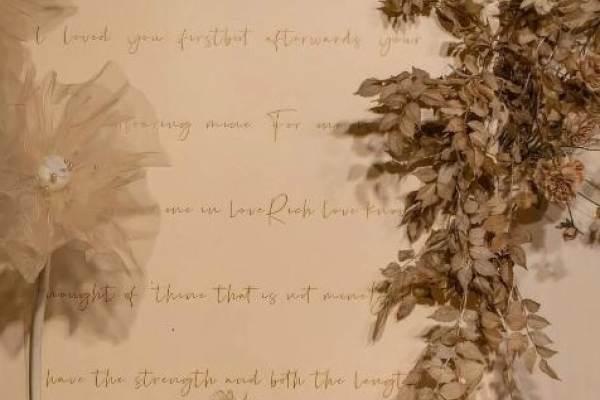 I loved you firstbut afterwards your
oaring mine For
one in loveRich love know
hought of 'thine that is not mine
have the strength and both the lengt